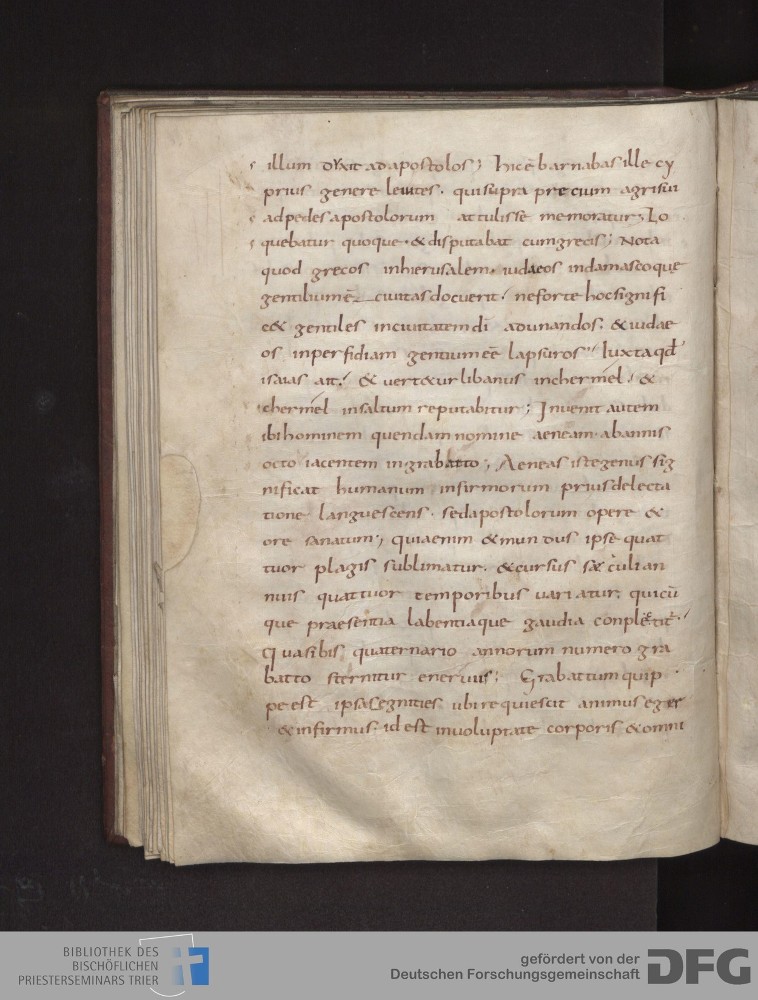 illum dvxit ad apostolos; hic ē barnabas ille cy
prius genere leuites. qui supra precium agri sui
ad pedes apostolorum attulisse memoratur; Lo
quebatur quoque. & disputabat cum grecis; Nota
quod grecos in hierusalem. iudaeos in damasco que
gentilium ē ciuitas docuerit. ne forte hoc signifi
c& gentiles in ciuitatem dī adunandos. & iudae
os in perfidiam gentium eē lapsuros. Iuxta qđ
isaias ait. & uert&ur libanus in chermel. &
chermel in saltum reputabitur; Inuenit autem
ibi hominem quendam nomine aeneam. ab annis
octo iacentem in grabatto; Aeneas iste genus sig
nificat humanum infirmorum prius delecta
tione languescens. sed apostolorum opere &
ore sanatum; quia enim & mundus ipse quat
tuor plagis sublimatur. & cursus sæculi an
nuis quattuor temporibus uariatur. quicū
que praesentia labentiaque gaudia
Quasi bis quaternario annorum numero gra
batto sternitur eneruis; Grabattum quip
pe est ipsa segnities ubi requiescit animus eger
& infirmus. id est in uoluptate corporis & omni
BIBLIOTHEK DES
BISCHÖFLICHEN
PRIESTERSEMINARS TRIER
gefördert von der
Deutschen Forschungsgemeinschaft
DFG